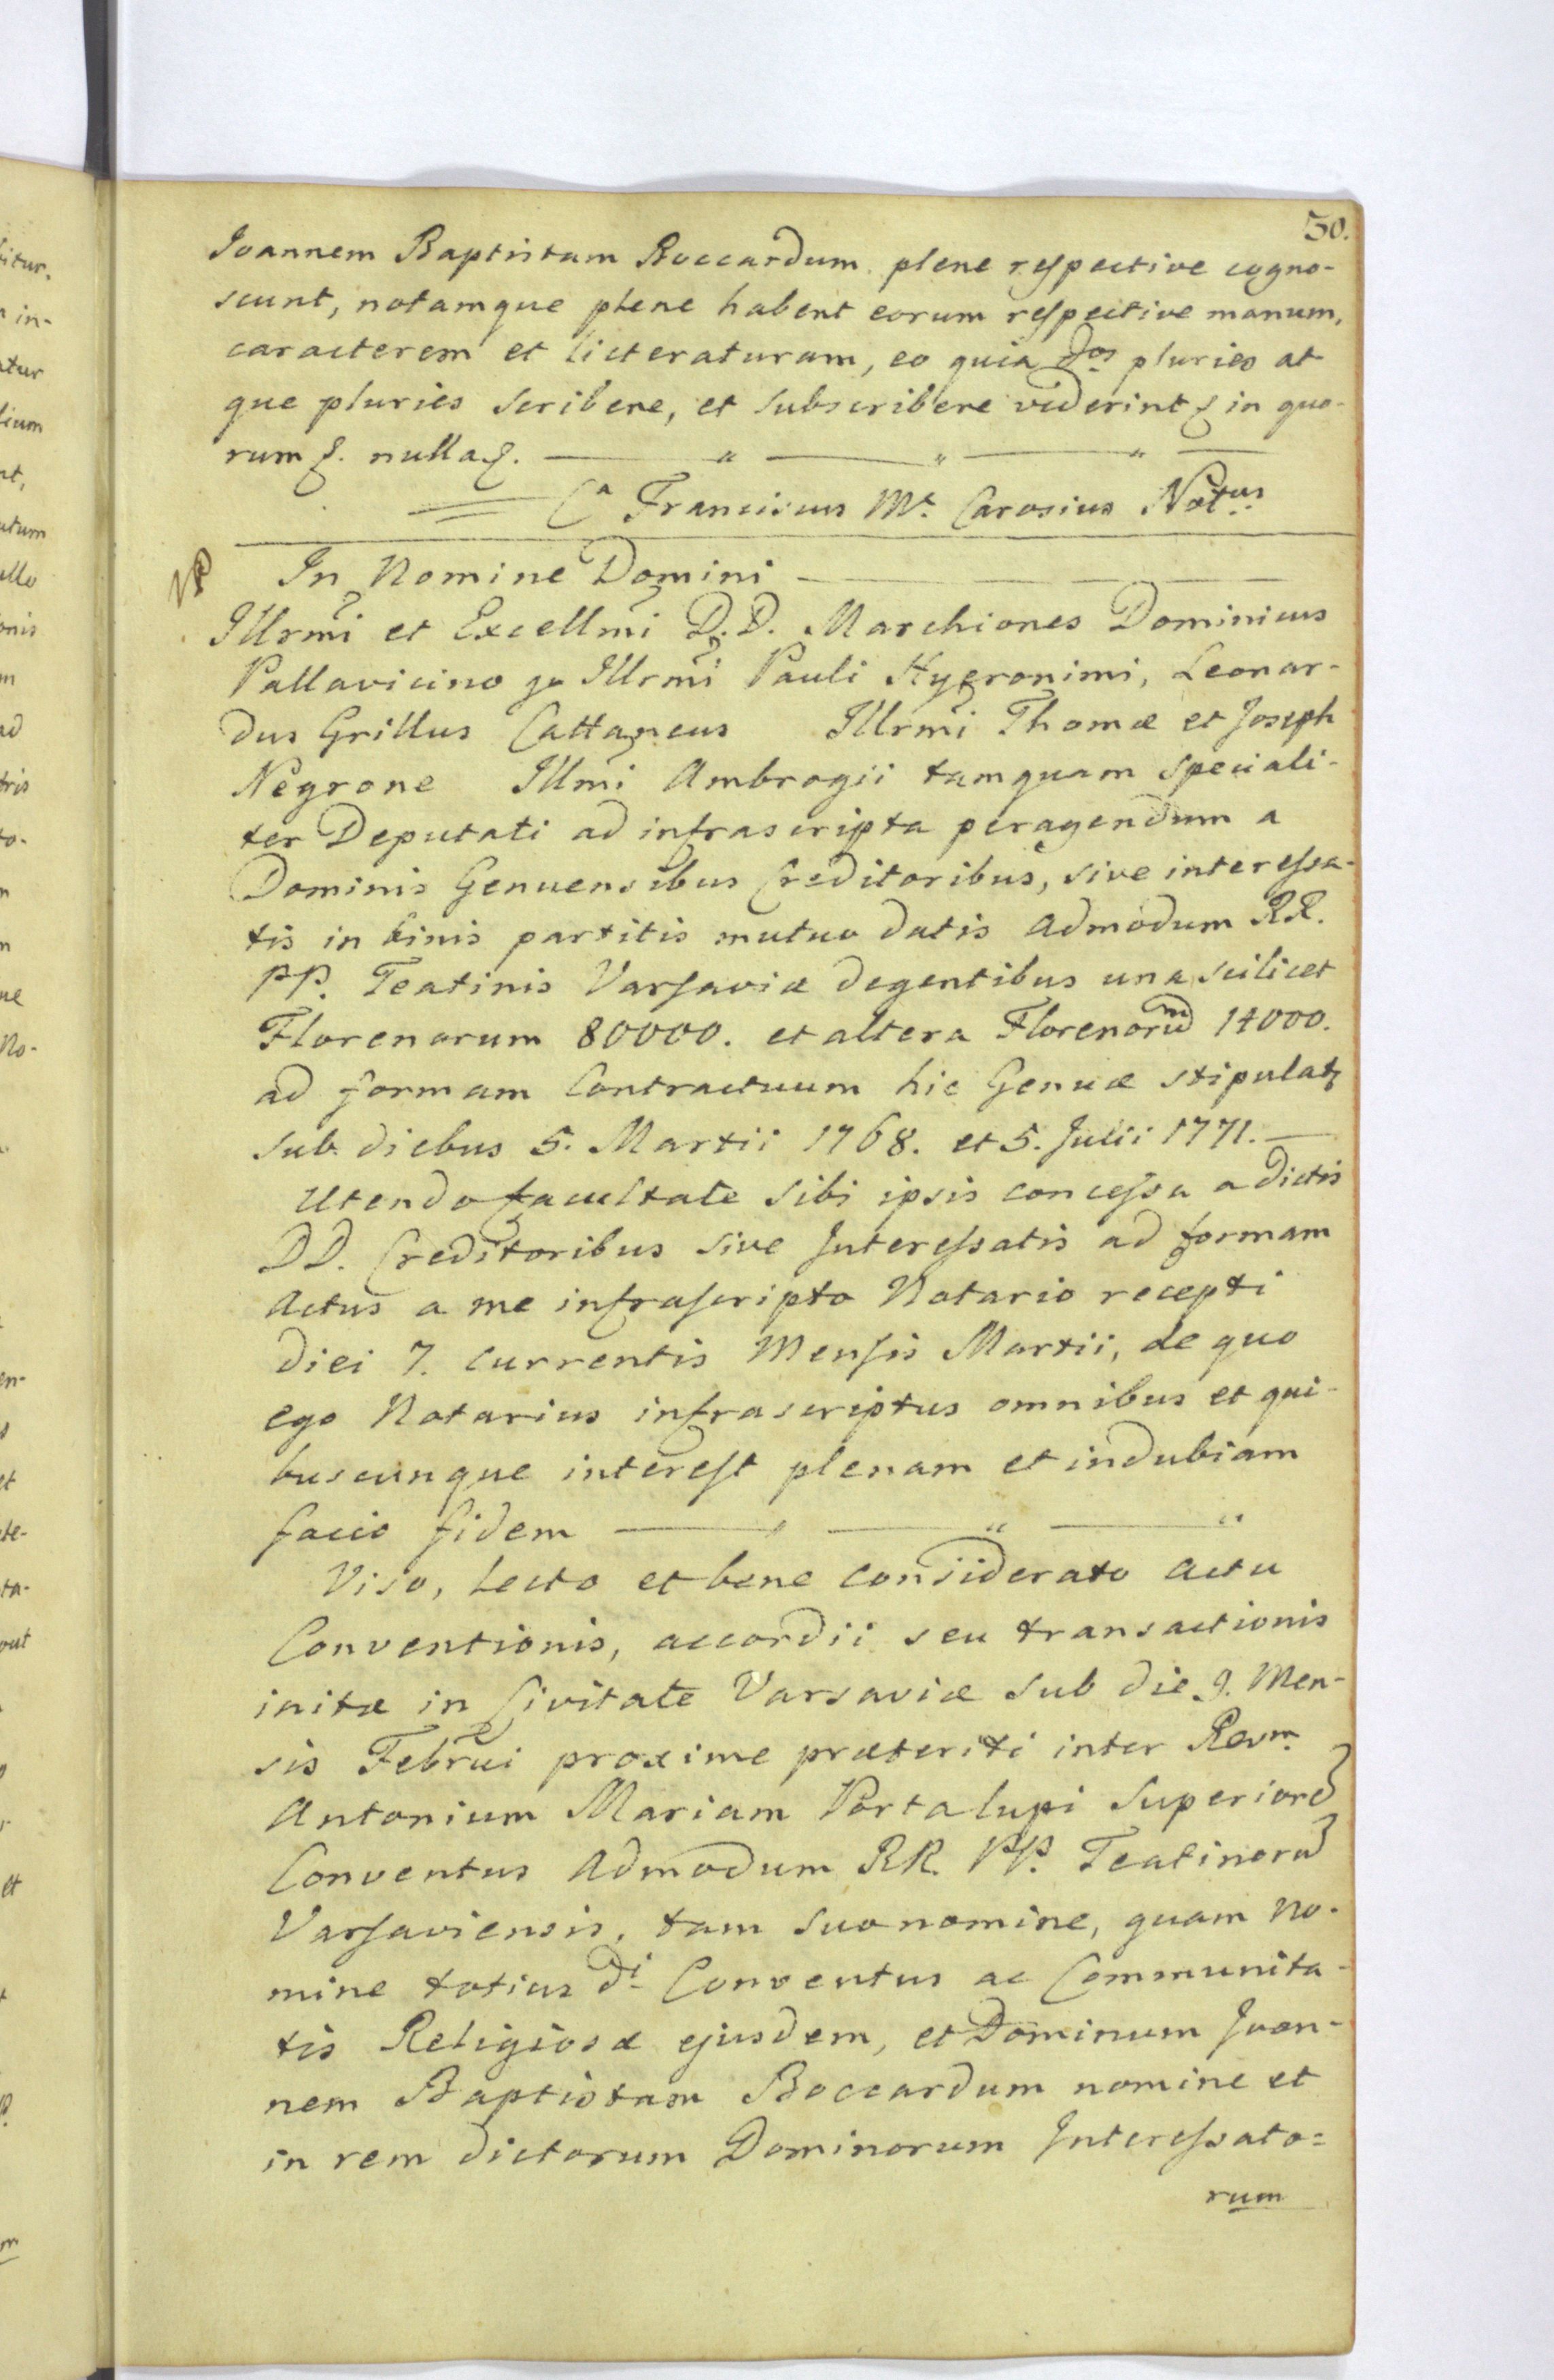 30.
Ioannem Baptistam Boccardum plene respective cogno-
scunt, notamque plene habent eorum respective manum,
caracterem et licteraturam, eo quia dos pluries at
que pluries scribere, et subscribere viderint & in quo-
rum &. nulla &.
Franciscus Ma. Carosius Notus
In Nomine Domini
Illrmi et Excellmi D.D. Marchiones Dominicus
Pallavicino qu Illrmi Pauli Hyeronimi, Leonar-
dus Grillus Cattaneus Illrmi Thomæ et Joseph
Negrone Illmi Ambrogii tamquam speciali-
ter Deputati ad infrascripta peragendum a
Dominis Genuensibus Creditoribus, sive interessa-
tis in binis partitis mutuo datis admodum RR.
PP. Teatinis Varsaviæ degentibus una scilicet
Florenorum 80000. et altera Florenorum 14000.
ad formam Contractuum hic Genuæ stipulat
sub diebus 5. Martii 1768. et 5. Julii 1771.
Utendo facultate sibi ipsis concessa a dictis
DD. Creditoribus sive Interessatis ad formam
actus a me infrascripto Notario recepti
diei 7. currentis Mensis Martii, de quo
ego Notarius infrascriptus omnibus et qui-
buscunque interest plenam et indubiam
facio fidem
Viso, lecto et bene considerato actu
Conventionis, accordii seu transactionis
initæ in Civitate Varsaviæ sub die 9. Men-
sis Februi proxime præteriti inter Revm.
Antonium Mariam Portalupi Superiore
Conventus Admodum RR. PP. Teatinoru
Varsaviensis, tam suo nomine, quam no-
mine totius di Conventus ac Communita-
tis Religiosæ ejusdem, et Dominum Joan-
nem Baptistam Boccardum nomine et
in rem dictorum Dominorum Interessato=
rum